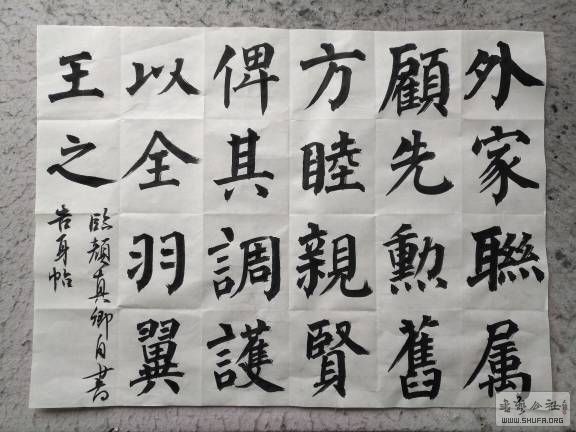 外家聯属
顧先勲舊
方睦親賢
俾其調護
以全羽翼
王之
臨顔真卿自書
告身帖
WWW.SHUFA.ORG